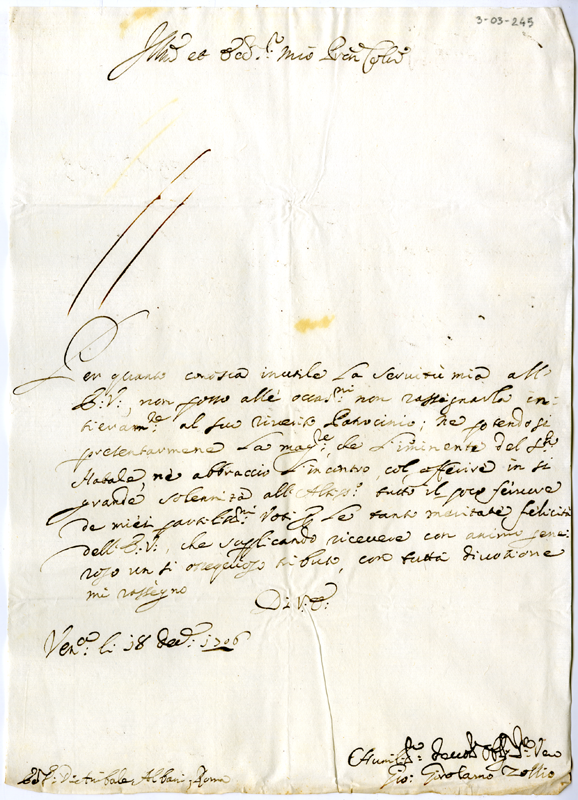 3-03-245
Illmo et Revmo Sr mio Pron Colmo
Per quanto conosca inutile la servitù mia all
V: non posso alle occasni non rassegnarla in-
tieramte al suo riverito Patrocinio; ne potendosi
presentarmene la magre, che l'iminente del Sto
Natale, ne abbraccio l'incontro, col offerire in si
grande solennità all'Altiss: tutto il poco fervore
de miei Voti p le tanto meritate felicità
dell V:, che suplicando ricevere con animo gene-
roso un si ossequioso tributo, con tutta divozione
mi rassegno
Di V:
Vena: li 18 Decem: 1706
Humiliss: Devotiss Obligss: Ser Vero
Gio: Girolamo Zollio
Annibale Albani, Roma